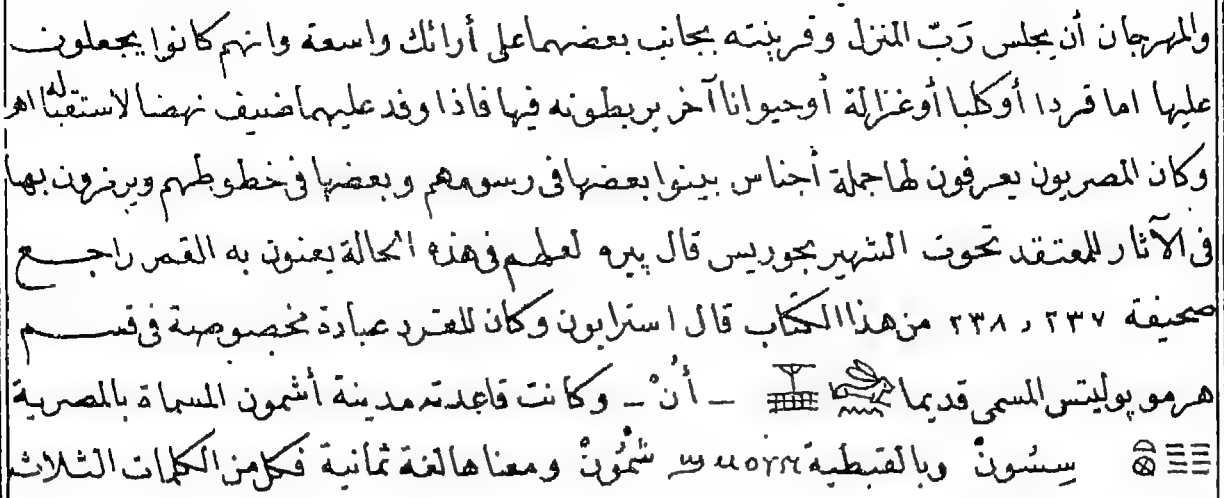 والمهرجان أن يجلس رَبّ المنزل وقرينته بجانب بعضهما على أرائك واسعة وانهم كانوا يجعلون
عليها اما قردا أوكلبا أوغزالة أوحيوانا آخر يربطونه فيها فاذا وفد عليهما ضيف نهضا لاستقباله اهـ
وكان المصريون يعرفون لها جملة أجناس بينوا بعضها فى رسومهم وبعضها فى خطوطهم ويرمزون بها
فى الآثار للمعتقد تحوت الشهير بجوريس قال پيره لعلهم فى هذه الحالة يعنون به القمر راجع
صحيفة ٢٣٧ و ٢٣٨ من هذا الكتاب قال استرابون وكان للقرد عبادة مخصوصة فى قسم
هرمو پوليتس المسمى قديما 𓃹𓈖 𓈈 ـ أُنْ ـ وكانت قاعدته مدينة أشمون المسماة بالمصرية
𓐁 𓏏𓊖 سِسُونْ وبالقبطية ϣⲙⲟⲩⲛ شْمُونْ ومعناها لغة ثمانية فكل من الكلمات الثلاث